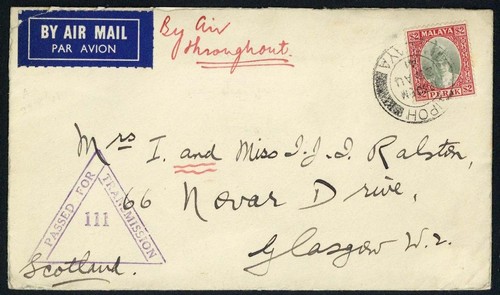 BY AIR MAIL
PAR AVION
By Air
throughout.
MALAYA
$2 $2
PERAK
IPOH
Mrs I. and Miss J. J. I. Ralston,
66 Novar Drive,
Glasgow W.2.
Scotland.
PASSED FOR
TRANSMISSION
111